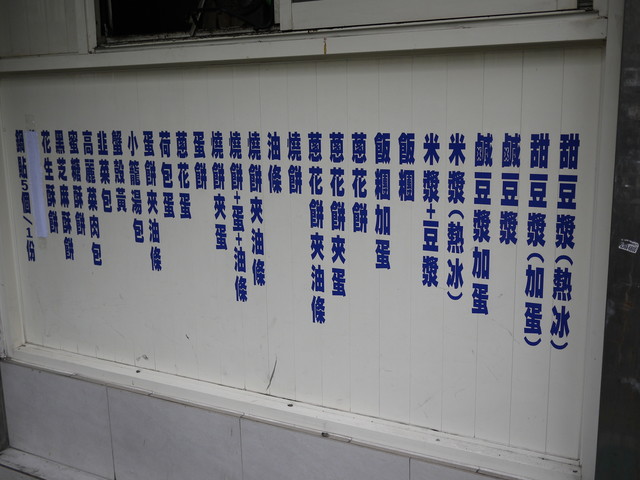 甜豆漿(熱冰)
甜豆漿(加蛋)
鹹豆漿
鹹豆漿加蛋
米漿(熱冰)
米漿+豆漿
飯糰
飯糰加蛋
蔥花餅
蔥花餅夾蛋
蔥花餅夾油條
燒餅
油條
燒餅夾油條
燒餅+蛋+油條
燒餅夾蛋
蛋餅
蔥花蛋
荷包蛋
蛋餅夾油條
小龍湯包
蟹殼黃
韭菜包
高麗菜肉包
蜜糖酥餅
黑芝麻酥餅
花生酥餅
鍋貼5個/1份